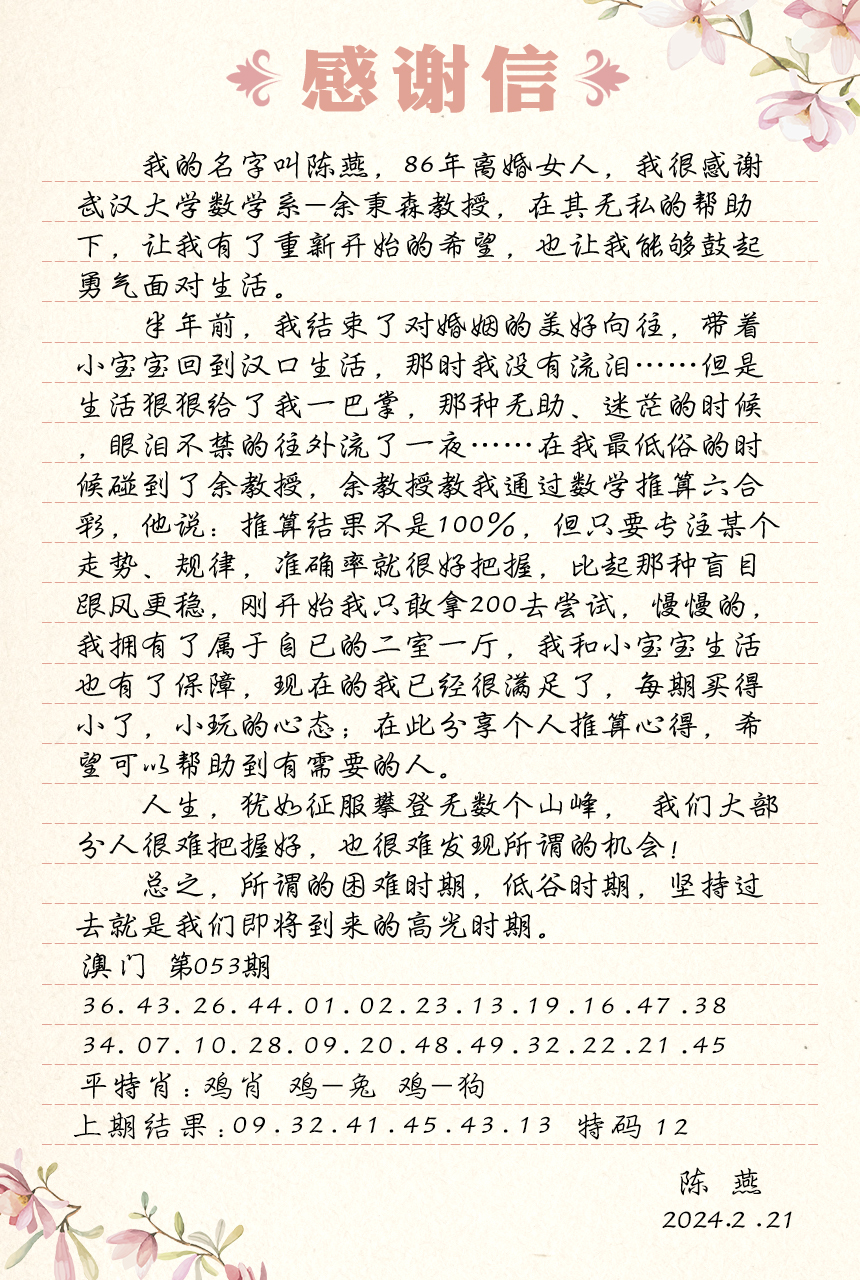 感谢信
我的名字叫陈燕，86年离婚女人，我很感谢
武汉大学数学系—余秉森教授，在其无私的帮助
下，让我有了重新开始的希望，也让我能够鼓起
勇气面对生活。
半年前，我结束了对婚姻的美好向往，带着
小宝宝回到汉口生活，那时我没有流泪……但是
生活狠狠给了我一巴掌，那种无助、迷茫的时候
，眼泪不禁的往外流了一夜……在我最低俗的时
候碰到了余教授，余教授教我通过数学推算六合
彩，他说：推算结果不是100%，但只要专注某个
走势、规律，准确率就很好把握，比起那种盲目
跟风更稳，刚开始我只敢拿200去尝试，慢慢的，
我拥有了属于自已的二室一厅，我和小宝宝生活
也有了保障，现在的我已经很满足了，每期买得
小了，小玩的心态；在此分享个人推算心得，希
望可以帮助到有需要的人。
人生，犹如征服攀登无数个山峰， 我们大部
分人很难把握好，也很难发现所谓的机会！
总之，所谓的困难时期，低谷时期，坚持过
去就是我们即将到来的高光时期。
澳门 第053期
36.43.26.44.01.02.23.13.19.16.47.38
34.07.10.28.09.20.48.49.32.22.21.45
平特肖：鸡肖 鸡—兔 鸡—狗
上期结果：09.32.41.45.43.13 特码 12
陈 燕
2024.2.21